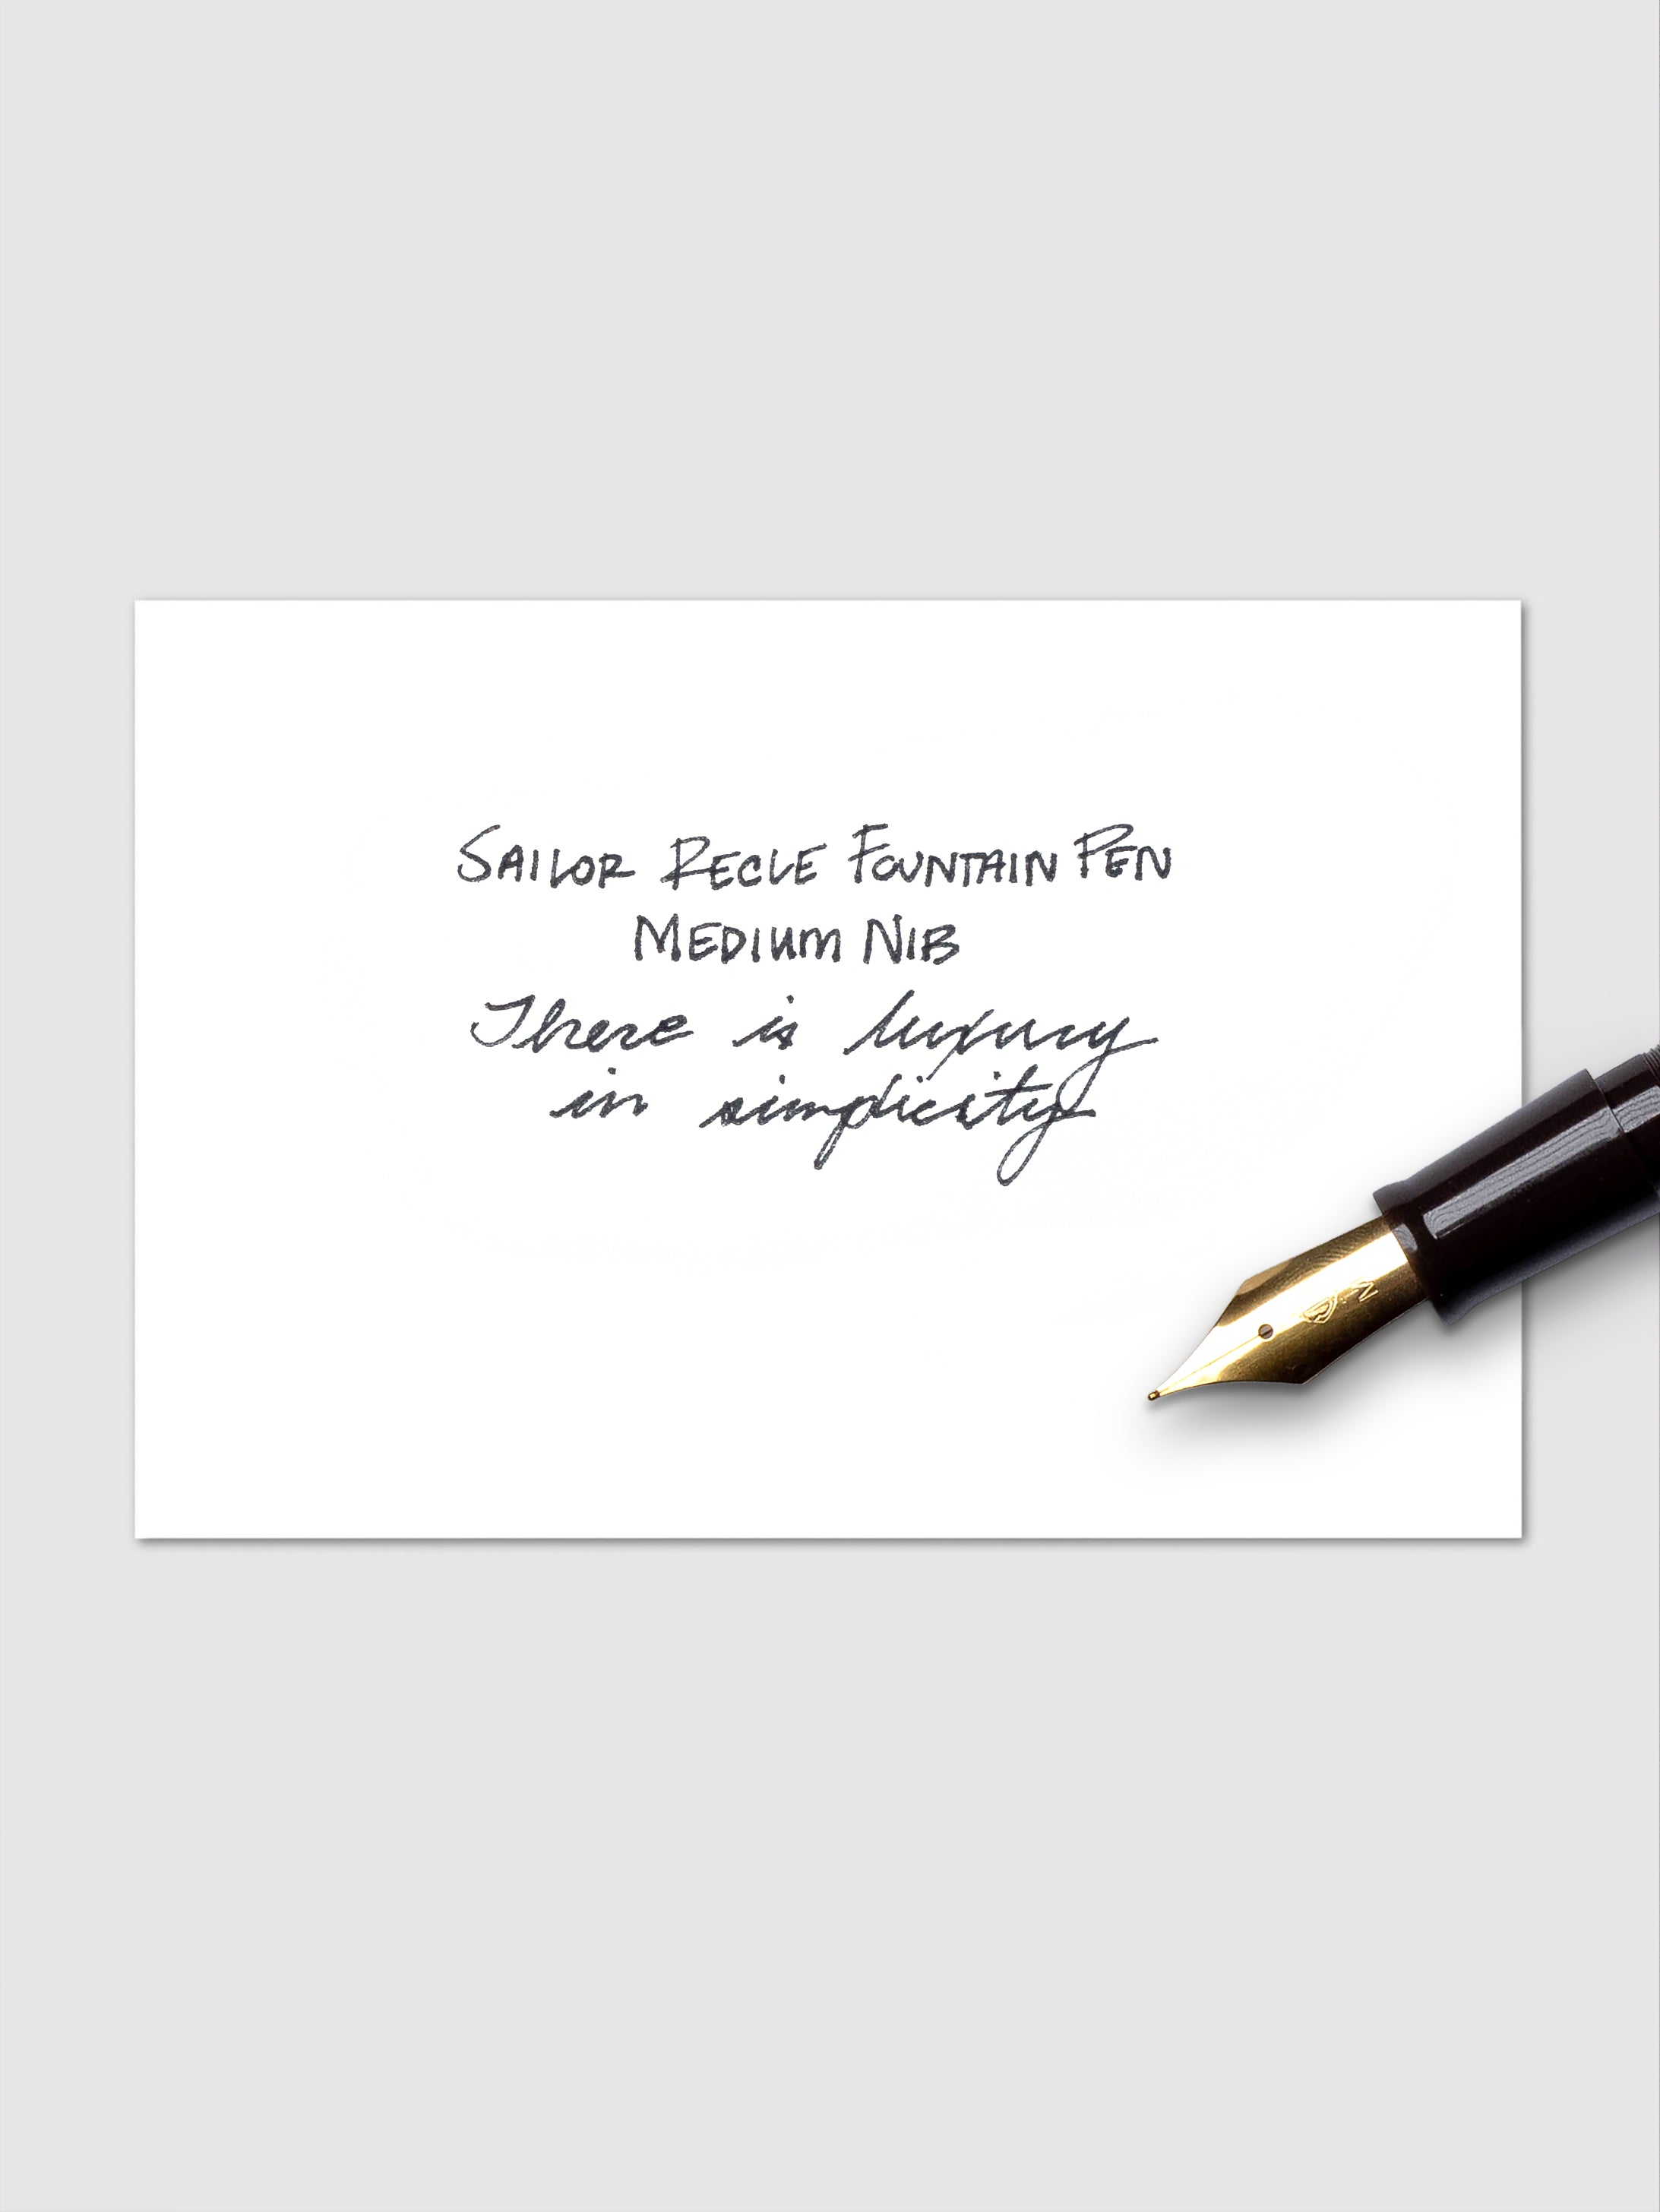 SAILOR RECLE FOUNTAIN PEN
MEDIUM NIB
There is luxury
in simplicity